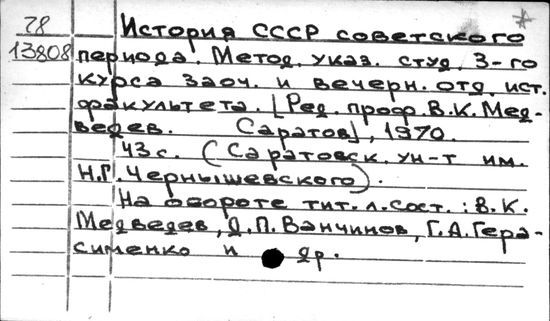 78 История СССР советского
13808 периода. Метод. указ. студ. 3-го
курса заоч. и вечерн. отд. ист.
факультета. [Ред. проф. В.К. Мед-
ведев. Саратов], 1970.
43 с. (Саратовск. ун-т им.
Н.Г. Чернышевского).
На обороте тит. л. сост.: В.К.
Медведев, Д.П. Ванчинов, Г.А. Гера-
сименко и др.